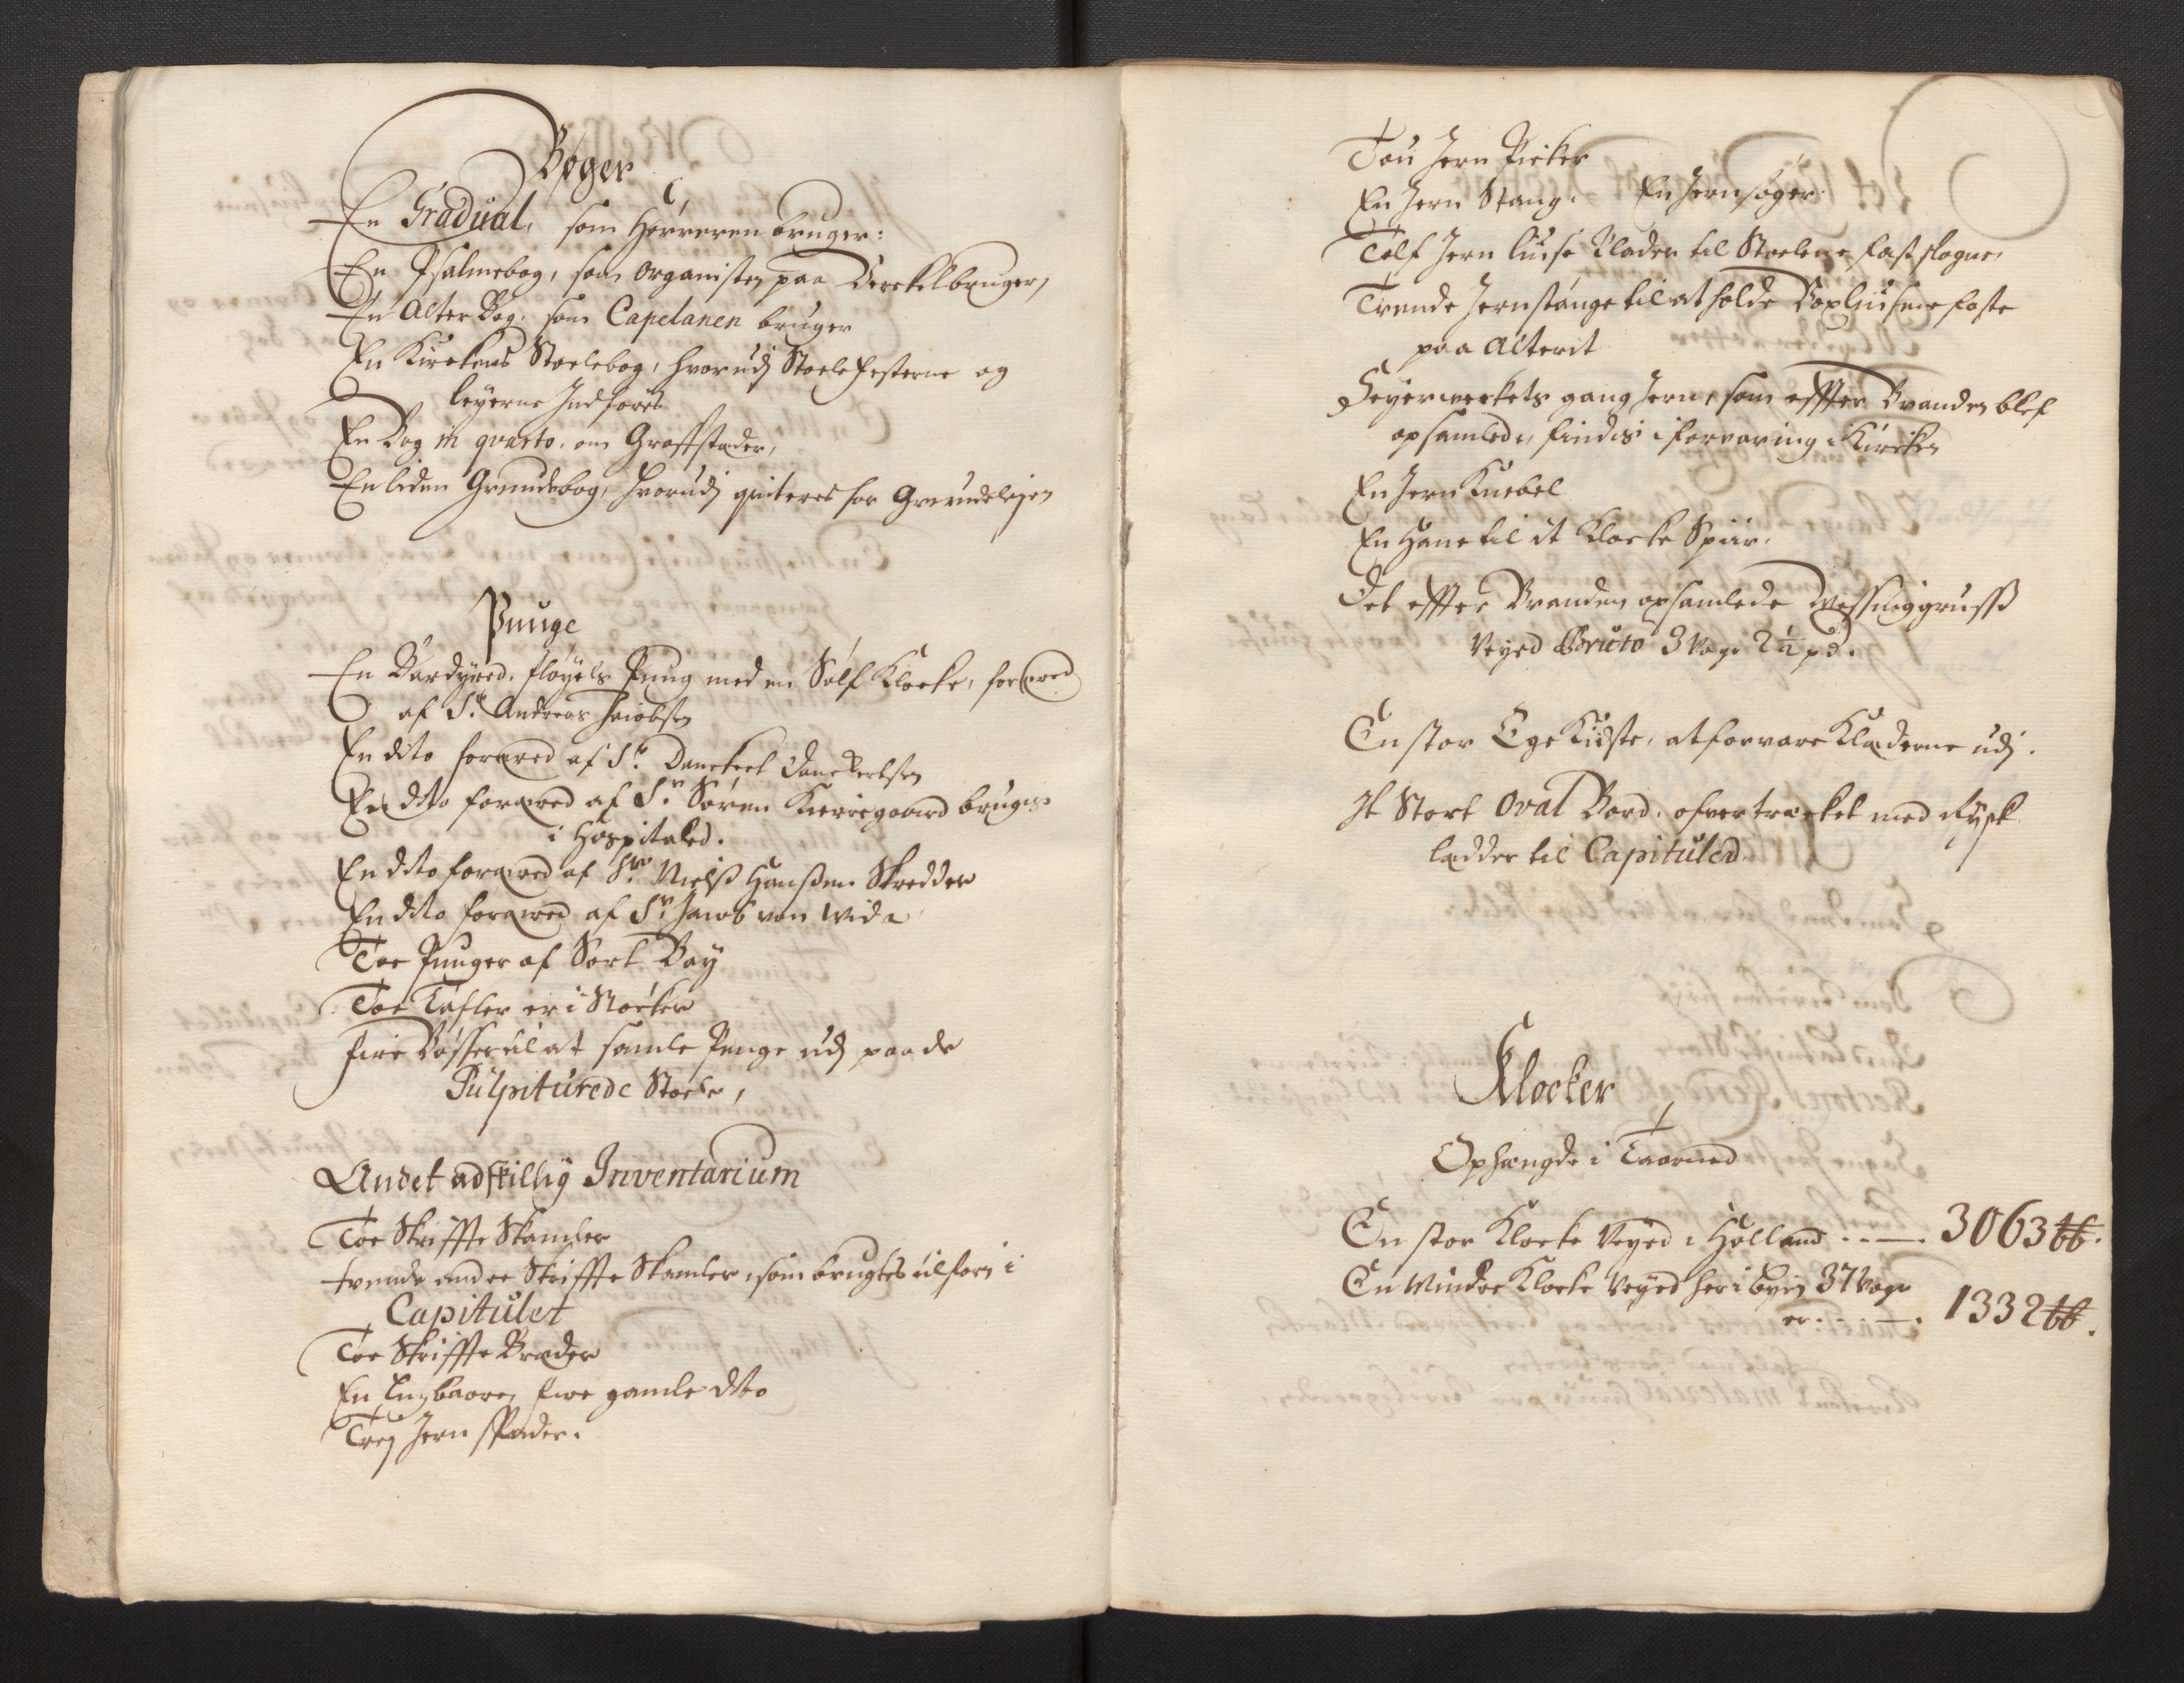 Bøger
En Gradual, som Hørreren bruger:
En Psalmebog, som Organisten paa Verckelbruger,
En Alter Bog, som Capelanen bruger
En Kirckens Stoelebog, hvorudj Stoelefesterne og
leyerne Indføris
En Bog in qvarto, om Graffstæder,
En liden Grundebog, hvorudj qviteres for Grundeleyen
Punge
En Bardyred fløyels Pung med en Sølf Klocke, foræred
af Sr. Andreas Jacobsen
En dito foræred af Sr. Danckert Danckertsen
En dito foræred af Sr. Søren Kierregaard bruges
i Hospitaled.
En dito foræred af Sr. Nielß Hanßen Skredder
En dito foræred af Sr. Jacob von Wida
Toe Punger af Sort Bay
Toe Tafler er i Støcker
fire Bøsser til at samle Penge udj paa de
Pulpiturede Stoele,
Andet adskillig Inventarium
Toe Skriffte Skamler
trende andre Skriffte Skamler, som brugtes tilforn i
Capitulet
Toe Skriffte Bræder
En Ligbaare, fire gamle dito
Trej Jern spader.
Tou Jern Picker
En Jern Stang. En Jernsøger.
Tolf Jern liuse Plader til Stoelene fastslagne,
Trende Jernstange til at holde Voxliusene faste
paa Alterit
Seyerverkets gang Jern, som effter Branden blef
opsamlede, findis i forvaring i Kircken
En Jern Knebel
En Hane til it Klocke Spiir.
Det effter Branden opsamlede Messinggruß
Veyed Bruto 3 Voge 2½ pd.
En stor Ege Kidste, at forvare Klæderne udj.
It Stort Oval Bord, ofvertræcket med Rysk
Lædder til Capituled.
Klocker
Ophængde i Taarned
En stor Klocke Veyed i Holland . . —. 3063 ℔.
En Mindre Klocke Veyed her i byen 37 Voge
er. . . . —. 1332 ℔.